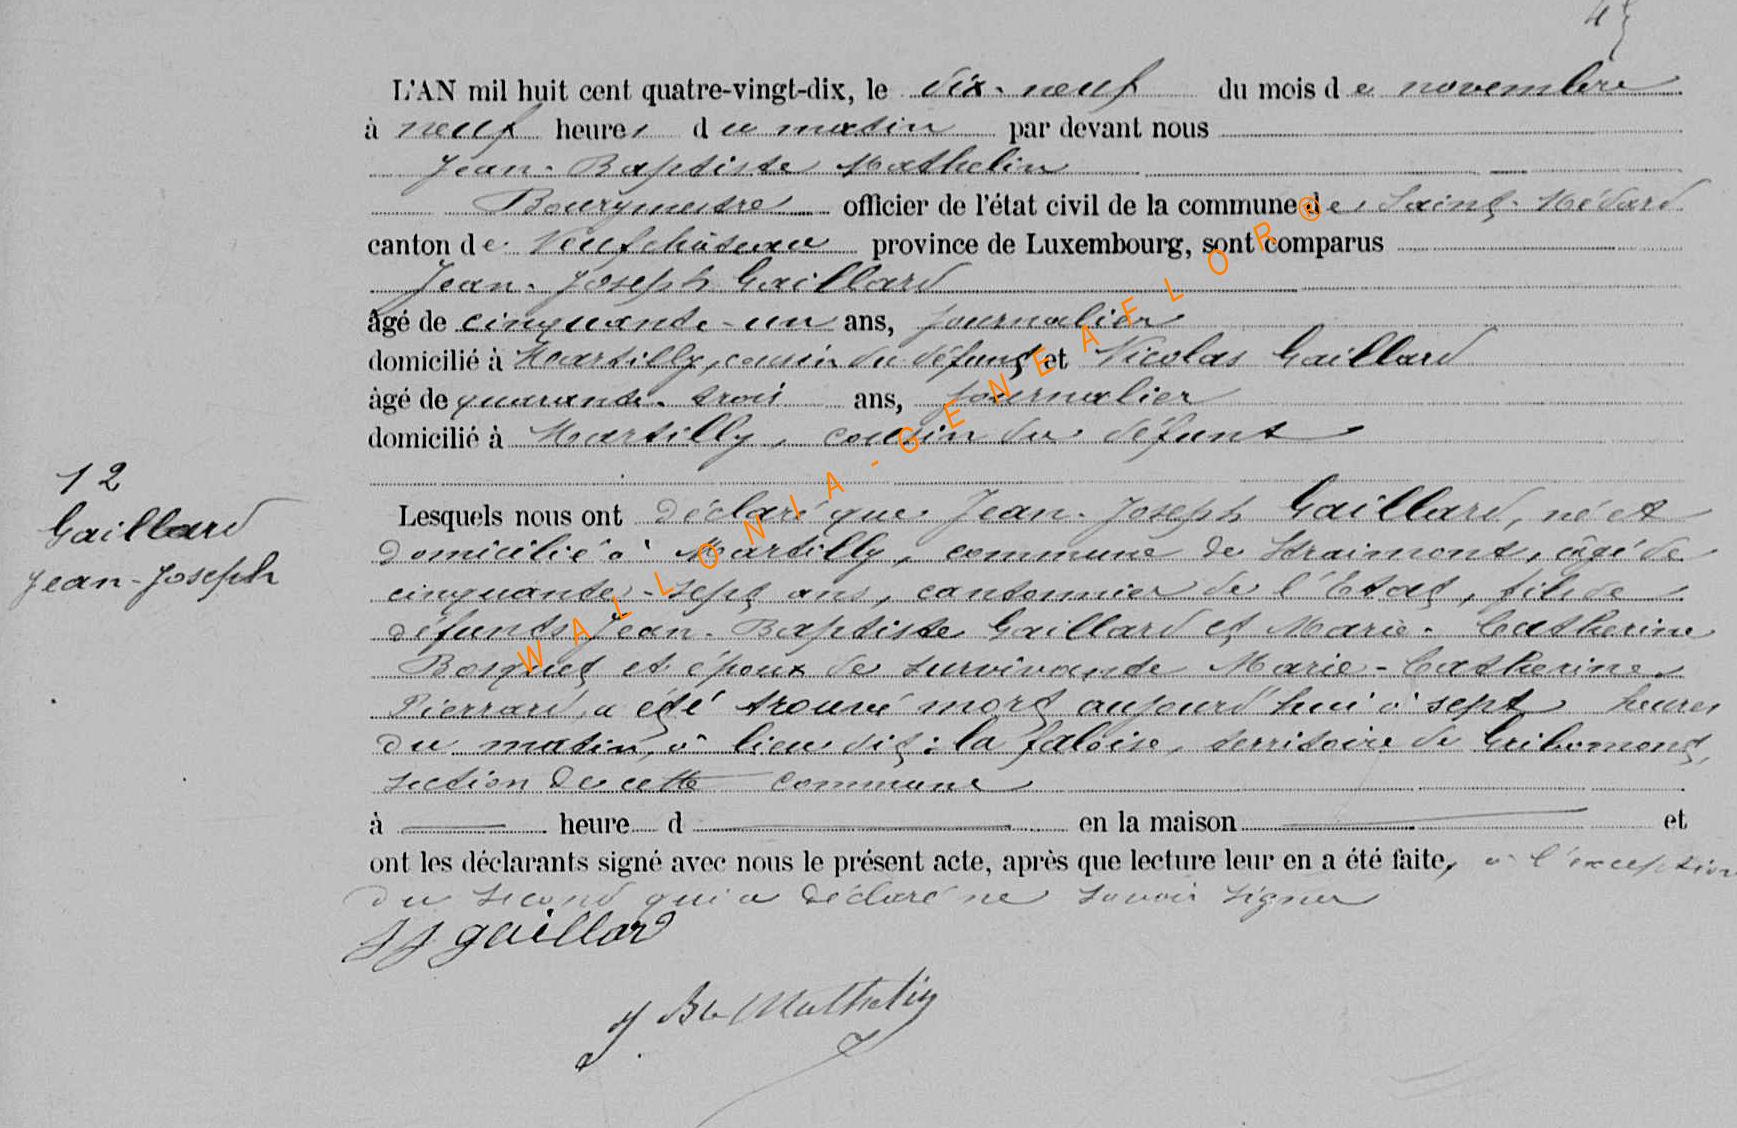 45
L'AN mil huit cent quatre-vingt-dix, le dix-neuf du mois de novembre
à neuf heures du matin par devant nous
Jean-Baptiste Mathelin
Bourgmestre officier de l'état civil de la commune de Saint-Médard
canton de Neufchâteau province de Luxembourg, sont comparus
Jean-Joseph Gaillard
âgé de cinquante-un ans, journalier
domicilié à Martilly, cousin du défunt et Nicolas Gaillard
âgé de quarante-trois ans, journalier
domicilié à Martilly, cousin du défunt
12
Gaillard
Jean-Joseph
Lesquels nous ont déclaré que Jean-Joseph Gaillard, né et
domicilié à Martilly, commune de Straimont, âgé de
cinquante-sept ans, cantonnier de l'Etat, fils de
défunts Jean-Baptiste Gaillard et Marie-Catherine
Bosquet et époux de survivante Marie-Catherine
Pierrard, a été trouvé mort aujourd'hui à sept heures
du matin, à lieu dit: la falaise, territoire de Gribomont,
section de cette commune
à heure d en la maison et
ont les déclarants signé avec nous le présent acte, après que lecture leur en a été faite, à l'exception
du second qui a déclaré ne savoir signer
JJ gaillard
J Bte Mathelin
WALLONIA-GENEAFLOR®